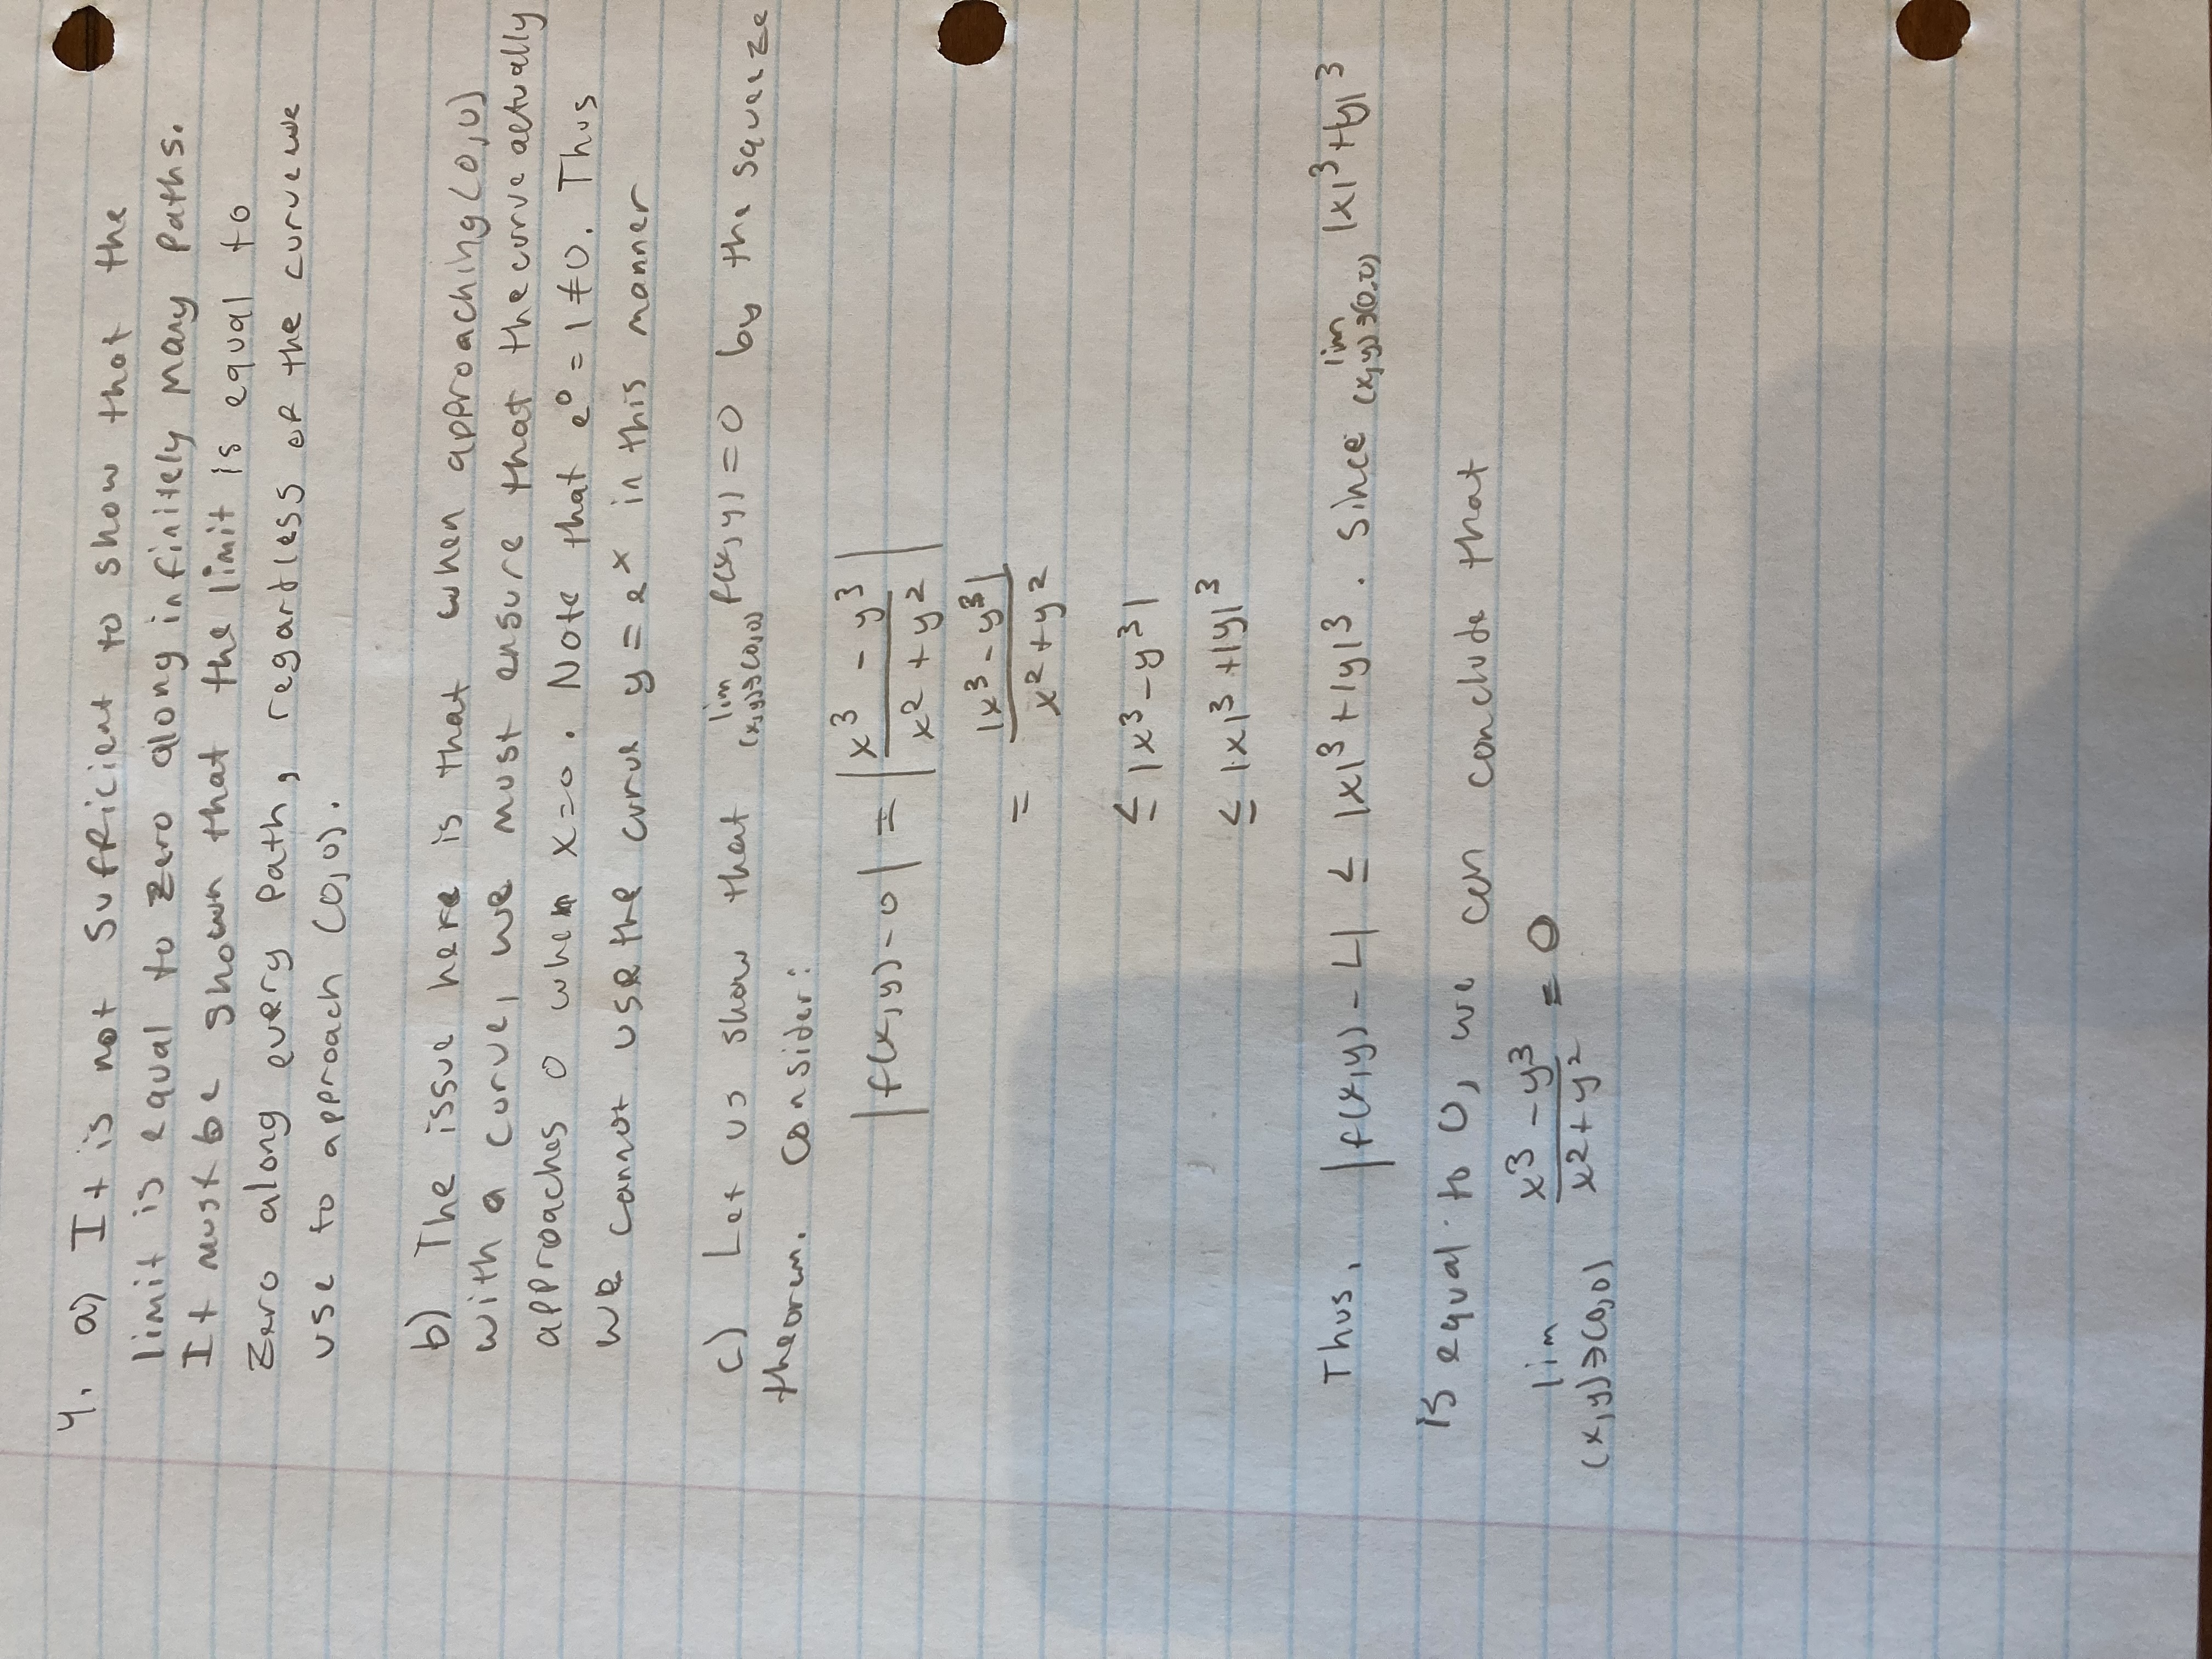 4. a) It is not sufficient to show that the
limit is equal to zero along infinitely many paths.
It must be shown that the limit is equal to
zero along every path, regardless of the curve we
use to approach (0,0).
b) The issue here is that when approaching (0,0)
with a curve, we must ensure that the curve actually
approaches 0 when x=0. Note that e⁰ = 1 ≠ 0. Thus
we cannot use the curve y = eˣ in this manner
c) Let us show that lim (x,y)→(0,0) f(x,y) = 0 by the squeeze
theorem. Consider:
|f(x,y) - 0| = |(x³ - y³)/(x² + y²)|
= |x³ - y³|/(x² + y²)
≤ |x³ - y³|
≤ |x|³ + |y|³
Thus, |f(x,y) - L| ≤ |x|³ + |y|³. Since lim (x,y)→(0,0) |x|³ + |y|³
is equal to 0, we can conclude that
lim (x,y)→(0,0) (x³ - y³)/(x² + y²) = 0